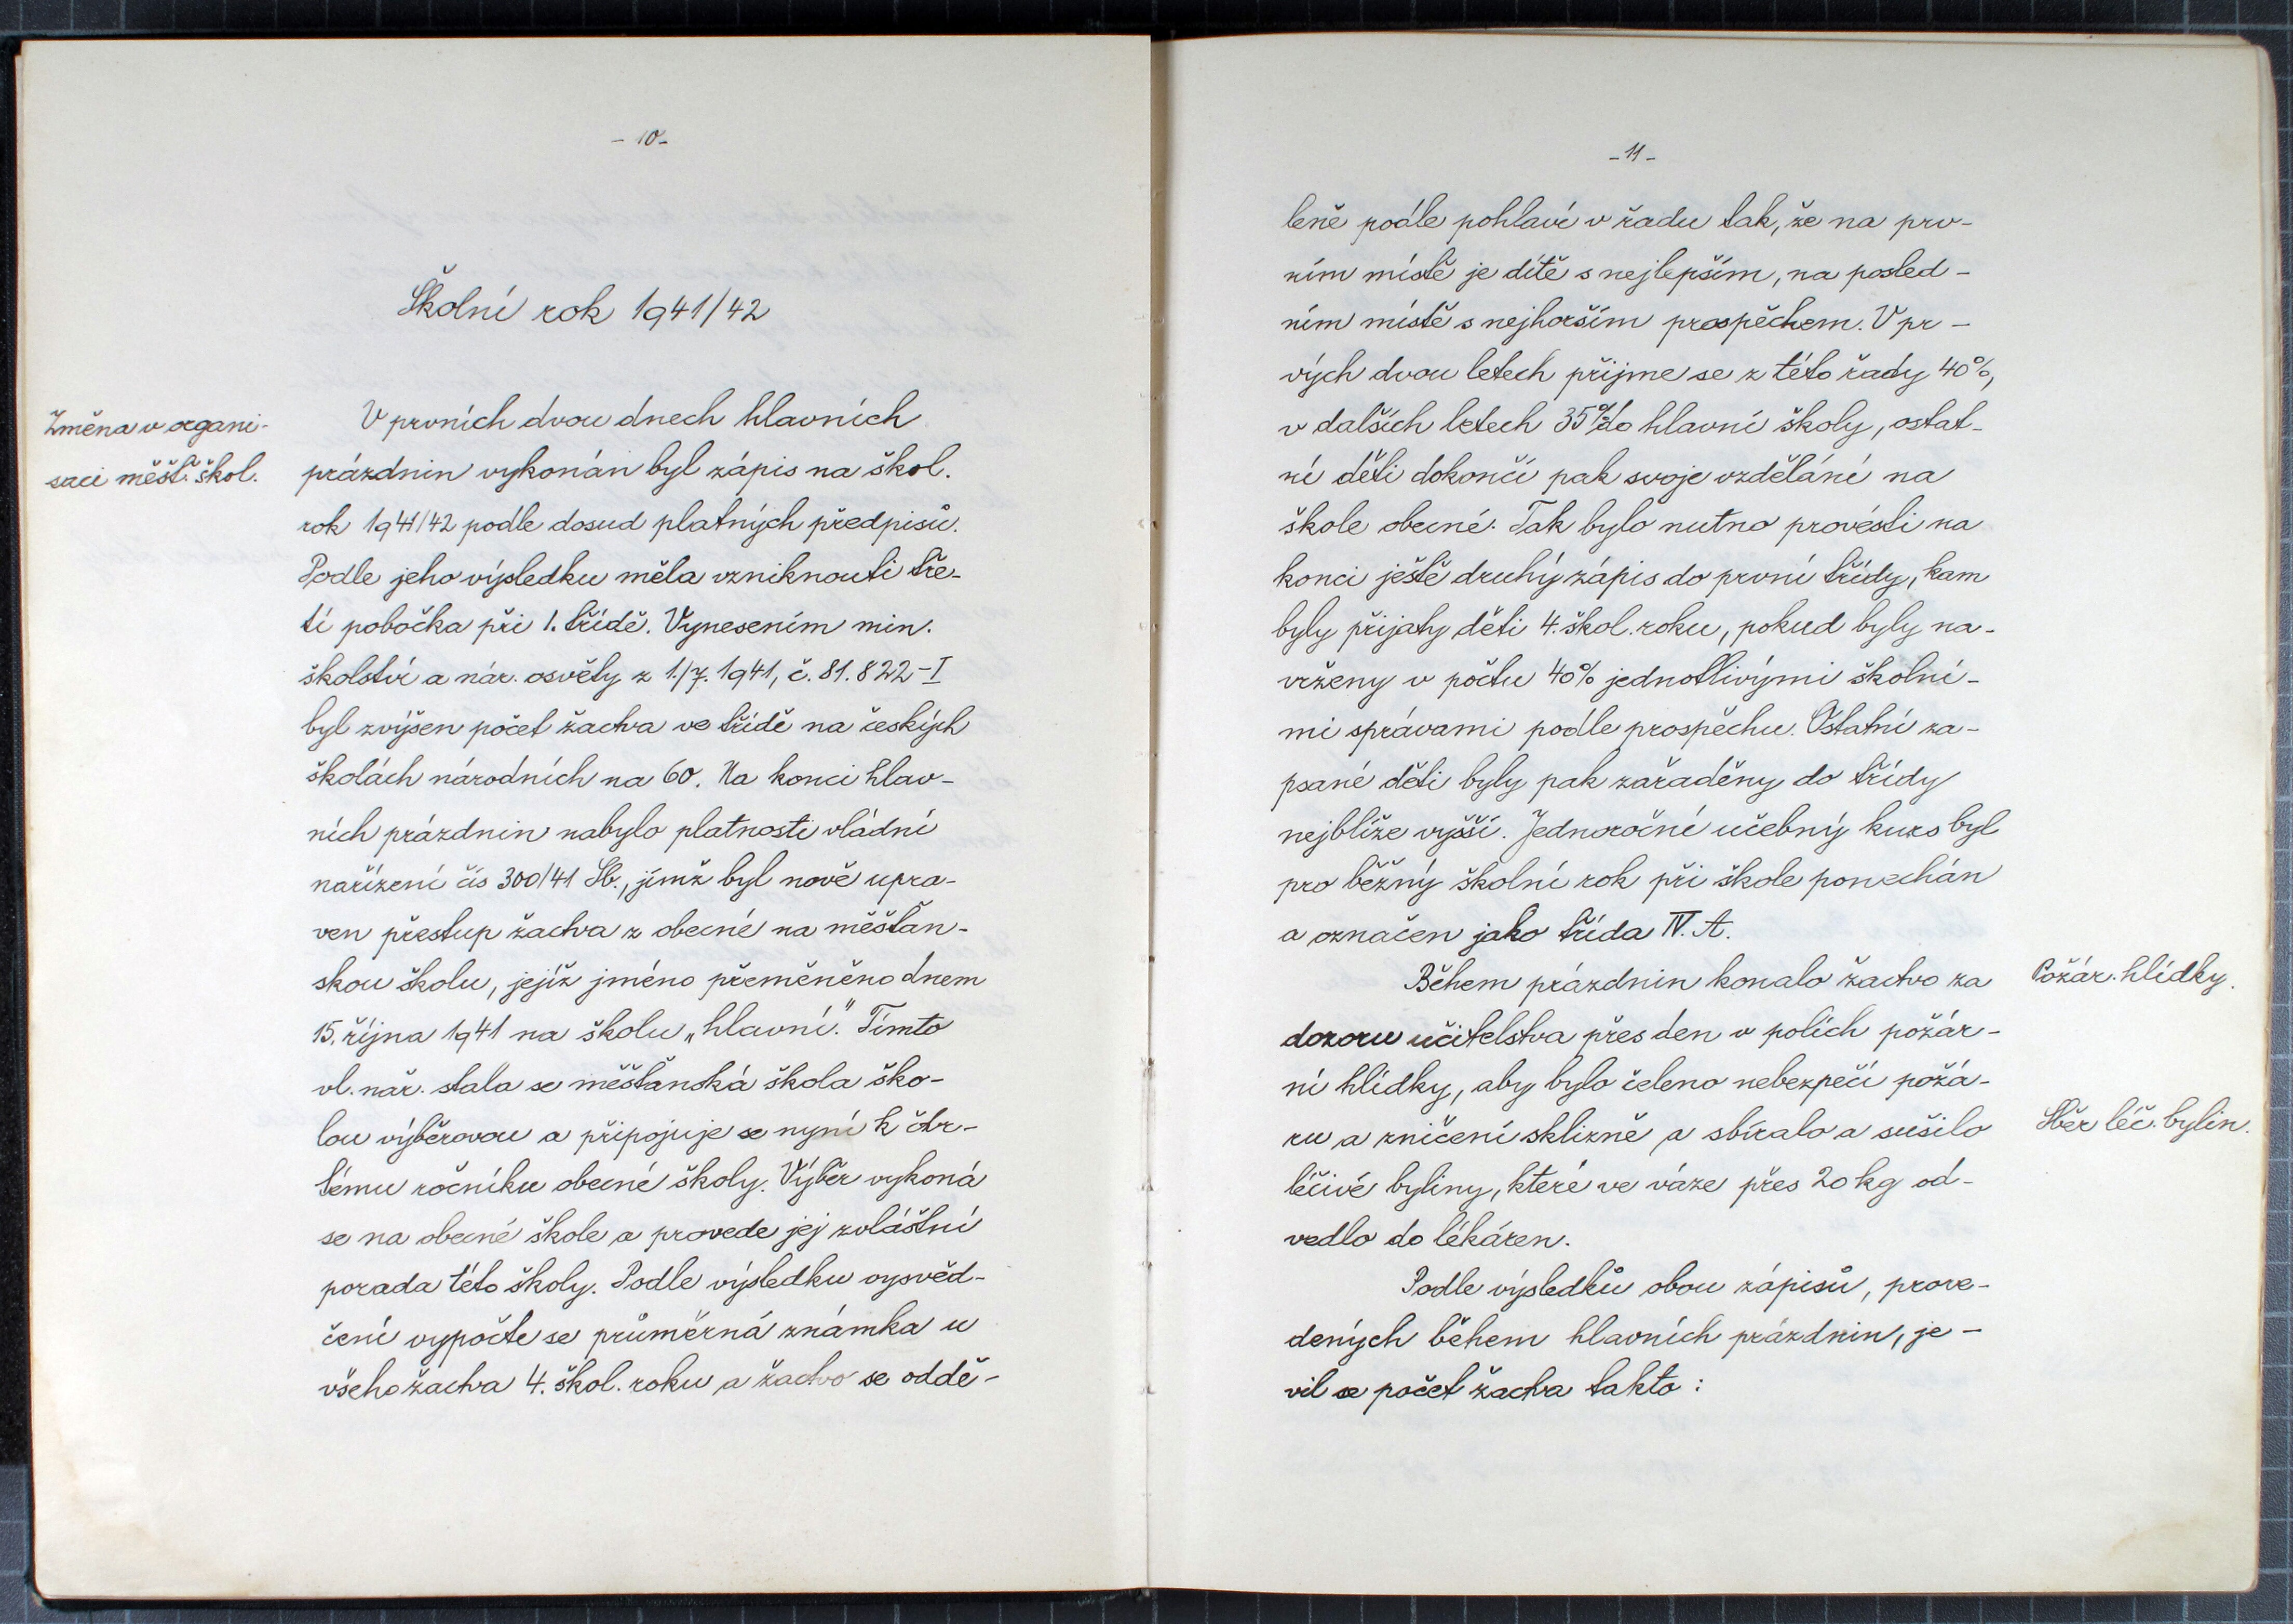 - 10 -
Školní rok 1941/42
Změna v organi-
saci měšť. škol.
V prvních dvou dnech hlavních
prázdnin vykonán byl zápis na škol.
rok 1941/42 podle dosud platných předpisů.
Podle jeho výsledku měla vzniknouti tře-
tí pobočka při 1. třídě. Vynesením min.
školství a nár. osvěty z 1./7. 1941, č. 81.822-I
byl zvýšen počet žactva ve třídě na českých
školách národních na 60. Na konci hlav-
ních prázdnin nabylo platnosti vládní
nařízení čís 300/41 Sb., jímž byl nově upra-
ven přestup žactva z obecné na měšťan-
skou školu, jejíž jméno přeměněno dnem
15. října 1941 na školu „hlavní." Tímto
vl. nař. stala se měšťanská škola ško-
lou výběrovou a připojuje se nyní k čtvr-
tému ročníku obecné školy. Výběr vykoná
se na obecné škole a provede jej zvláštní
porada této školy. Podle výsledku vysvěd-
čení vypočte se průměrná známka u
všeho žactva 4. škol. roku a žactvo se oddě-
- 11 -
leně podle pohlaví v řadu tak, že na prv-
ním místě je dítě s nejlepším, na posled-
ním místě s nejhorším prospěchem. V pr-
vých dvou letech přijme se z této řady 40%,
v dalších letech 35% do hlavní školy, ostat-
ní děti dokončí pak svoje vzdělání na
škole obecné. Tak bylo nutno provésti na
konci ještě druhý zápis do první třídy, kam
byly přijaty děti 4. škol. roku, pokud byly na-
vrženy v počtu 40% jednotlivými školní-
mi správami podle prospěchu. Ostatní za-
psané děti byly pak zařaděny do třídy
nejblíže vyšší. Jednoroční učebný kurs byl
pro běžný školní rok při škole ponechán
a označen jako třída IV. A.
Během prázdnin konalo žactvo za
Požár. hlídky.
dozoru učitelstva přes den v polích požár-
ní hlídky, aby bylo čeleno nebezpečí požá-
ru a zničení sklizně a sbíralo a sušilo
Sběr léč. bylin.
léčivé byliny, které ve váze přes 20 kg od-
vedlo do lékáren.
Podle výsledků obou zápisů, prove-
dených během hlavních prázdnin, je-
vil se počet žactva takto: